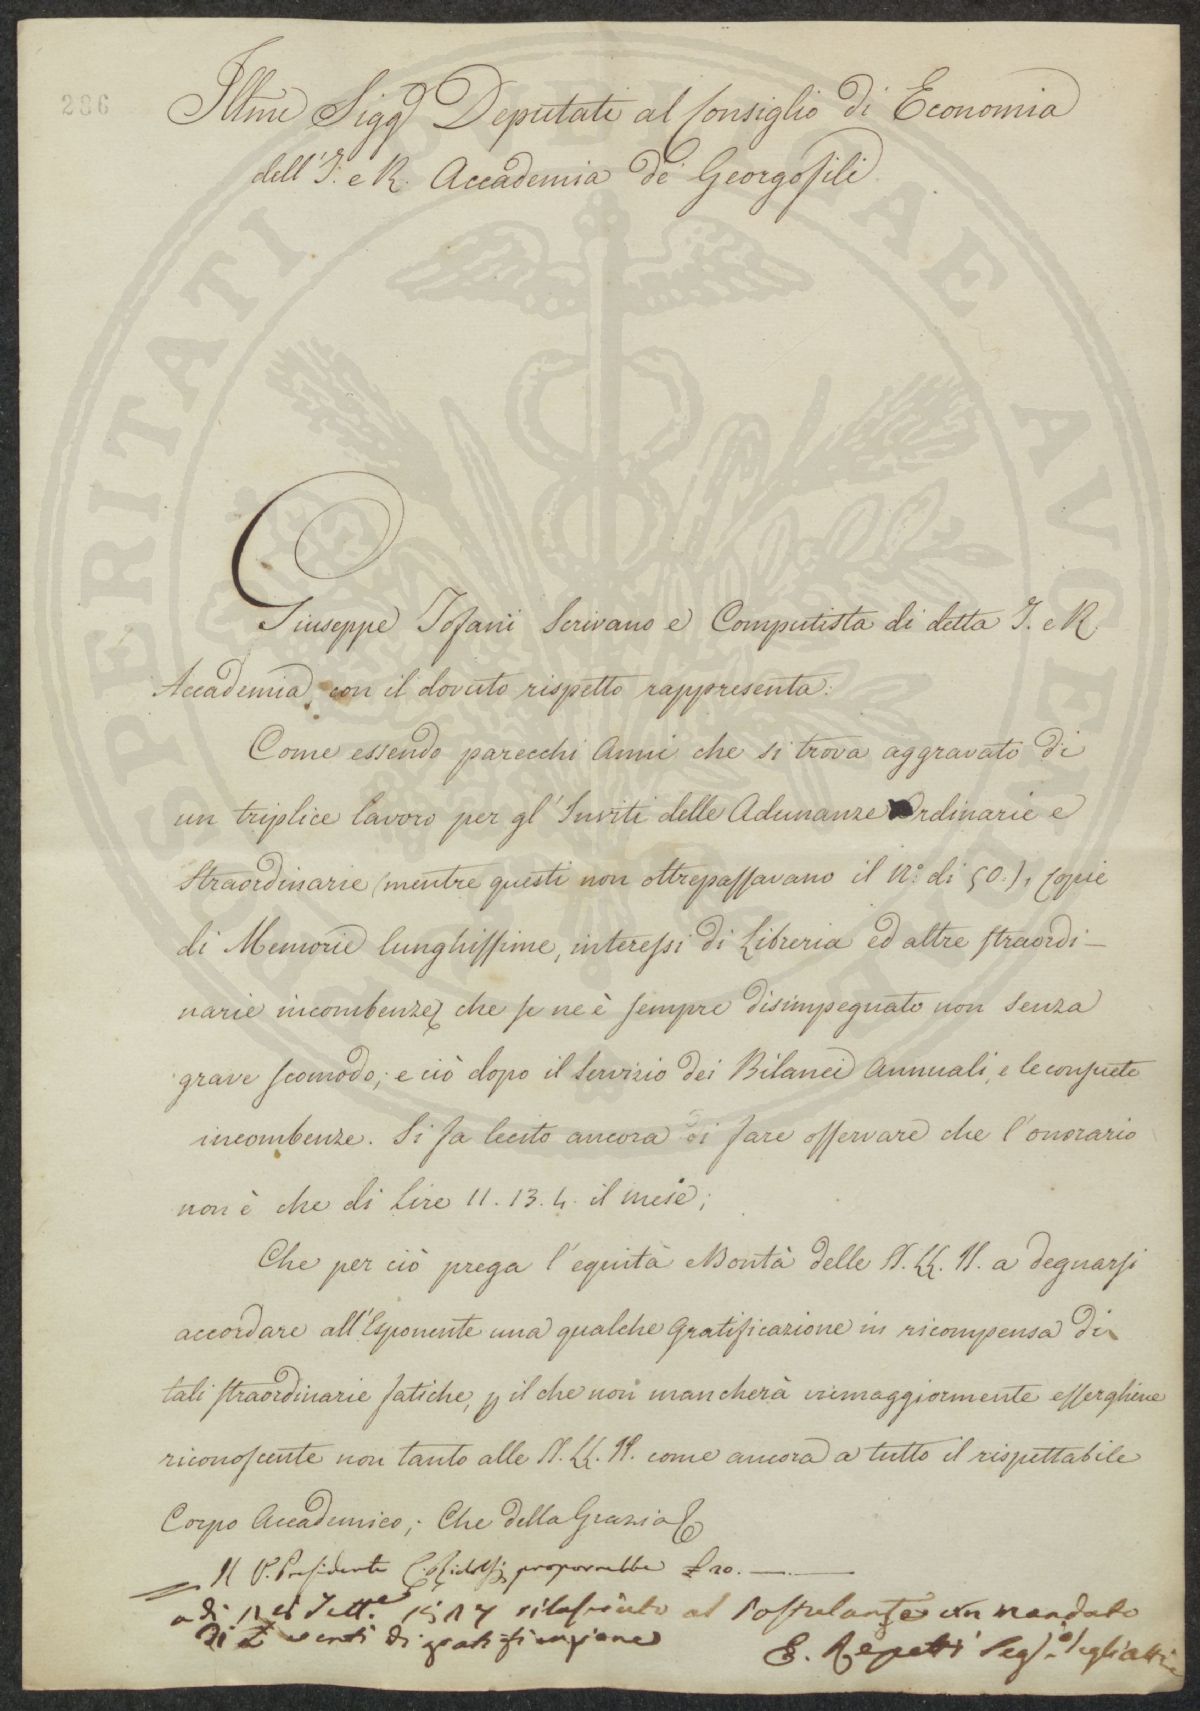 286
Illmi Sigg Deputati al Consiglio di Economia
dell'I. e R. Accademia de' Georgofili
Giuseppe Tofani Scrivano e Computista di detta I. e R.
Accademia, con il dovuto rispetto rappresenta:
Come essendo parecchi Anni che si trova aggravato di
un triplice lavoro per gl'Inviti delle Adunanze Ordinarie e
Straordinarie (mentre questi non oltrepassavano il N.° di 50.), copie
di Memorie lunghissime, interessi di Libreria ed altre straordi-
narie incombenze, che se ne è sempre disimpegnato non senza
grave scomodo; e ciò dopo il Servizio dei Bilanci Annuali, e le consuete
incombenze. Si fa lecito ancora di fare osservare che l'onorario
non è che di Lire 11. 13. 4. il mese;
Che per ciò prega l'equità e Bontà delle SS. LL. II. a degnarsi
accordare all'Esponente una qualche Gratificazione in ricompensa di
tali straordinarie fatiche, p il che non mancherà vimaggiormente esserghene
riconoscente non tanto alle SS. LL. II. come ancora a tutto il rispettabile
Corpo Accademico; Che della Grazia
Il V. Presidente C. Ridolfi proporrebbe £ 20.
a di 12 Sett.e rilasciato al Postulante un mandato
di £ venti di gratificazione
E. Repetti Seg.o degli Atti
PROSPERITATI PUBLICAE AUGENDAE